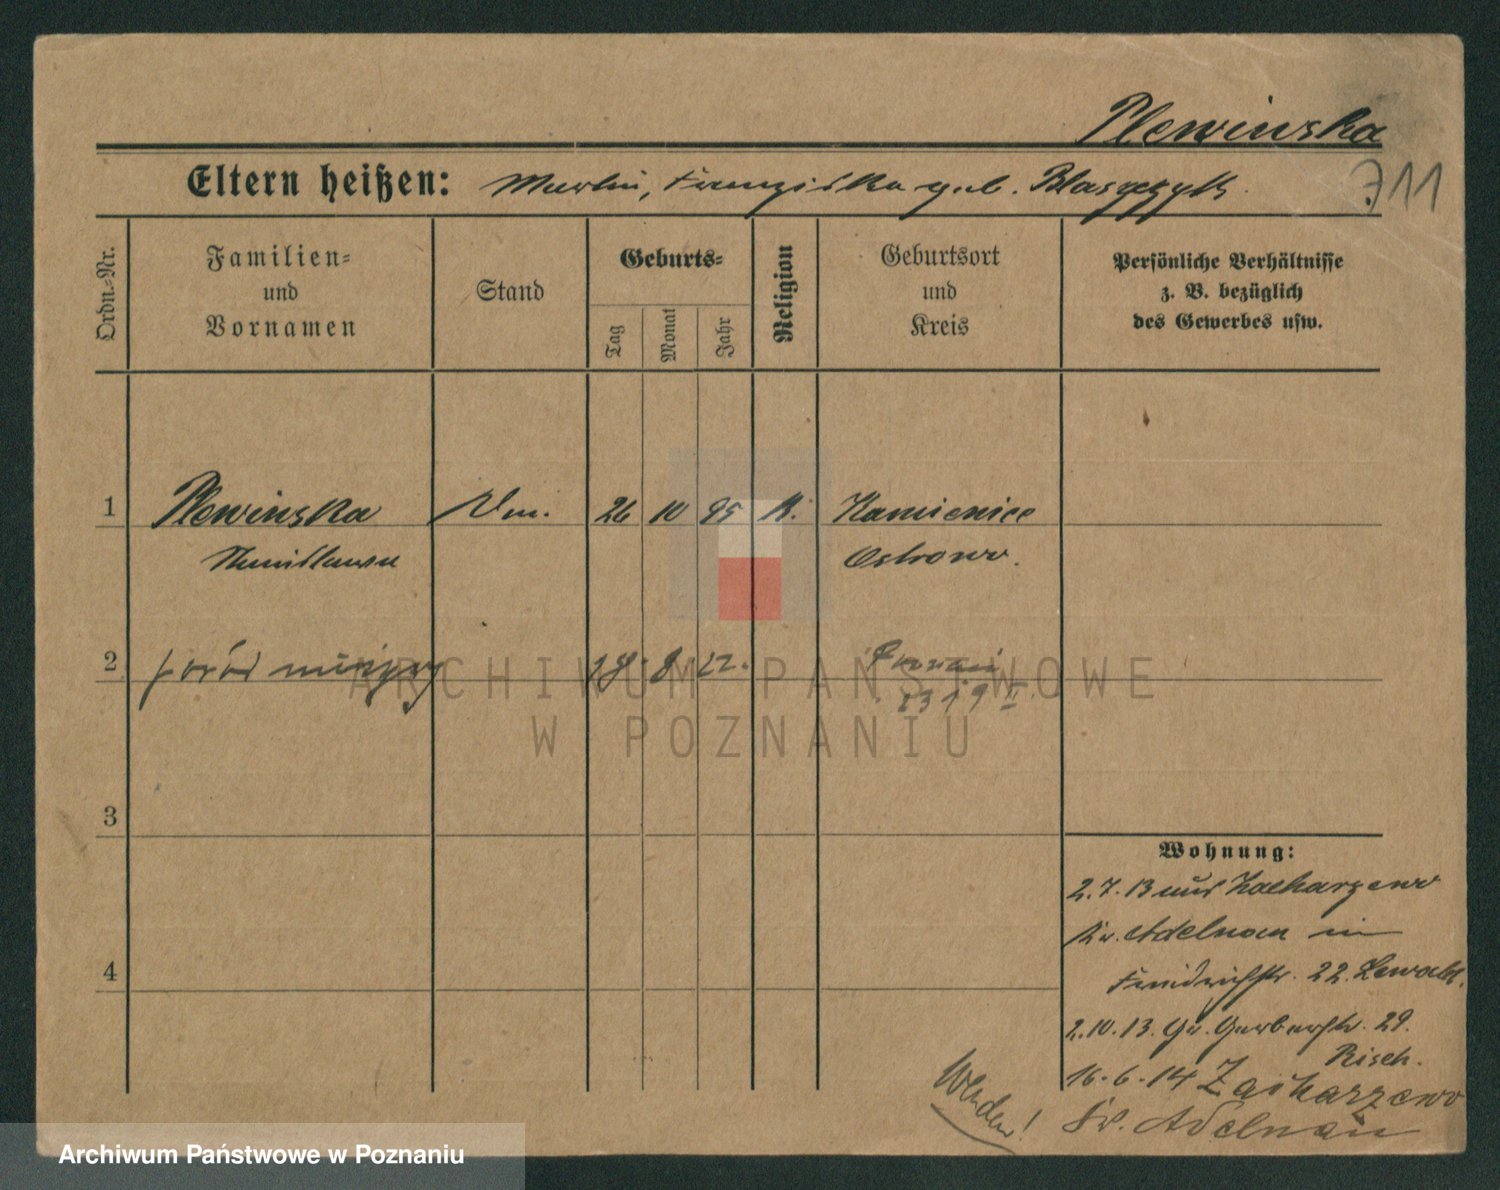 Plewinska
Eltern heißen: Martin, Franziska geb. Blaszczyk
711
Ordn.-Nr.
Familien-
und
Vornamen
Stand
Geburts-
Tag
Monat
Jahr
Religion
Geburtsort
und
Kreis
Persönliche Verhältnisse
z. B. bezüglich
des Gewerbes usw.
1 Plewinska 26 10 95 K. Kamienice
Ostrowo.
2 8 22.
ARCHIWUM PAŃSTWOWE
W POZNANIU
3
Wohnung:
2.7.13 aus Zacharzewo
Kr. Adelnau in
4
Friedrichstr. 22.
2.10.13. Gr. Gerberstr. 29.
Risch.
16.6.14 Zacharzewo
Kr. Adelnau
Wenden!
Archiwum Państwowe w Poznaniu